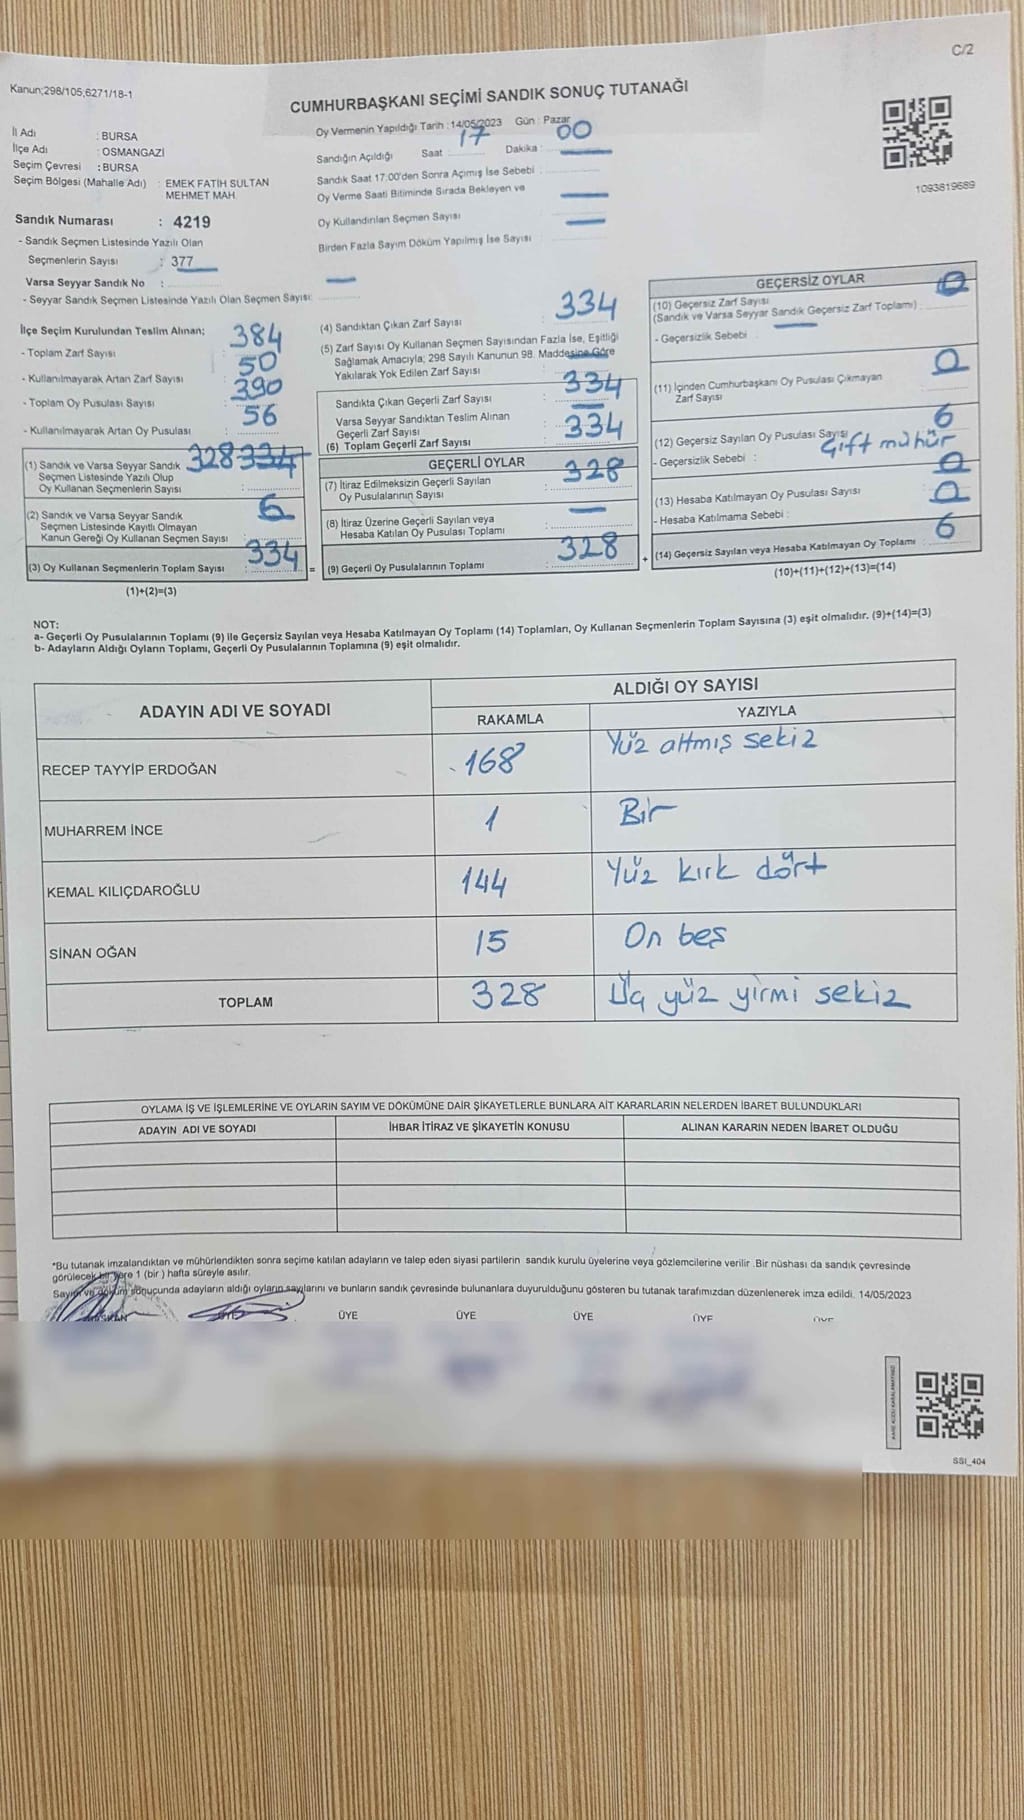 C/2
Kanun;298/105,6271/18-1
CUMHURBAŞKANI SEÇİMİ SANDIK SONUÇ TUTANAĞI
İl Adı : BURSA
İlçe Adı : OSMANGAZİ
Seçim Çevresi : BURSA
Seçim Bölgesi (Mahalle Adı) : EMEK FATİH SULTAN
MEHMET MAH.
Sandık Numarası : 4219
- Sandık Seçmen Listesinde Yazılı Olan
Seçmenlerin Sayısı : 377
Varsa Seyyar Sandık No :
- Seyyar Sandık Seçmen Listesinde Yazılı Olan Seçmen Sayısı:
Oy Vermenin Yapıldığı Tarih : 14/05/2023 Gün : Pazar
Sandığın Açıldığı Saat : 17 Dakika : 00
Sandık Saat 17:00'den Sonra Açımış İse Sebebi :
Oy Verme Saati Bitiminde Sırada Bekleyen ve
Oy Kullandırılan Seçmen Sayısı
Birden Fazla Sayım Döküm Yapılmış İse Sayısı
1093819689
İlçe Seçim Kurulundan Teslim Alınan;
- Toplam Zarf Sayısı 384
- Kullanılmayarak Artan Zarf Sayısı 50
- Toplam Oy Pusulası Sayısı 390
- Kullanılmayarak Artan Oy Pusulası 56
(1) Sandık ve Varsa Seyyar Sandık 328 334
Seçmen Listesinde Yazılı Olup
Oy Kullanan Seçmenlerin Sayısı :
(2) Sandık ve Varsa Seyyar Sandık 6
Seçmen Listesinde Kayıtlı Olmayan
Kanun Gereği Oy Kullanan Seçmen Sayısı :
(3) Oy Kullanan Seçmenlerin Toplam Sayısı : 334 =
(1)+(2)=(3)
(4) Sandıktan Çıkan Zarf Sayısı : 334
(5) Zarf Sayısı Oy Kullanan Seçmen Sayısından Fazla İse, Eşitliği
Sağlamak Amacıyla; 298 Sayılı Kanunun 98. Maddesine Göre
Yakılarak Yok Edilen Zarf Sayısı
Sandıkta Çıkan Geçerli Zarf Sayısı : 334
Varsa Seyyar Sandıktan Teslim Alınan
Geçerli Zarf Sayısı
(6) Toplam Geçerli Zarf Sayısı : 334
GEÇERLİ OYLAR
(7) İtiraz Edilmeksizin Geçerli Sayılan
Oy Pusulalarının Sayısı : 328
(8) İtiraz Üzerine Geçerli Sayılan veya
Hesaba Katılan Oy Pusulası Toplamı :
(9) Geçerli Oy Pusulalarının Toplamı : 328 +
GEÇERSİZ OYLAR
(10) Geçersiz Zarf Sayısı 0
(Sandık ve Varsa Seyyar Sandık Geçersiz Zarf Toplamı) :
- Geçersizlik Sebebi :
(11) İçinden Cumhurbaşkanı Oy Pusulası Çıkmayan 0
Zarf Sayısı
(12) Geçersiz Sayılan Oy Pusulası Sayısı 6
- Geçersizlik Sebebi : Çift mühür
(13) Hesaba Katılmayan Oy Pusulası Sayısı 0
- Hesaba Katılmama Sebebi : 0
(14) Geçersiz Sayılan veya Hesaba Katılmayan Oy Toplamı : 6
(10)+(11)+(12)+(13)=(14)
NOT:
a- Geçerli Oy Pusulalarının Toplamı (9) ile Geçersiz Sayılan veya Hesaba Katılmayan Oy Toplamı (14) Toplamları, Oy Kullanan Seçmenlerin Toplam Sayısına (3) eşit olmalıdır. (9)+(14)=(3)
b- Adayların Aldığı Oyların Toplamı, Geçerli Oy Pusulalarının Toplamına (9) eşit olmalıdır.
ADAYIN ADI VE SOYADI ALDIĞI OY SAYISI
RAKAMLA YAZIYLA
RECEP TAYYİP ERDOĞAN 168 Yüz altmış sekiz
MUHARREM İNCE 1 Bir
KEMAL KILIÇDAROĞLU 144 Yüz kırk dört
SİNAN OĞAN 15 On beş
TOPLAM 328 Üç yüz yirmi sekiz
OYLAMA İŞ VE İŞLEMLERİNE VE OYLARIN SAYIM VE DÖKÜMÜNE DAİR ŞİKAYETLERLE BUNLARA AİT KARARLARIN NELERDEN İBARET BULUNDUKLARI
ADAYIN ADI VE SOYADI İHBAR İTİRAZ VE ŞİKAYETİN KONUSU ALINAN KARARIN NEDEN İBARET OLDUĞU
*Bu tutanak imzalandıktan ve mühürlendikten sonra seçime katılan adayların ve talep eden siyasi partilerin sandık kurulu üyelerine veya gözlemcilerine verilir .Bir nüshası da sandık çevresinde
görülecek bir yere 1 (bir ) hafta süreyle asılır.
Sayım ve döküm sonuçunda adayların aldığı oyların sayılarını ve bunların sandık çevresinde bulunanlara duyurulduğunu gösteren bu tutanak tarafımızdan düzenlenerek imza edildi. 14/05/2023
ÜYE ÜYE ÜYE ÜYE ÜYE
SSI_404